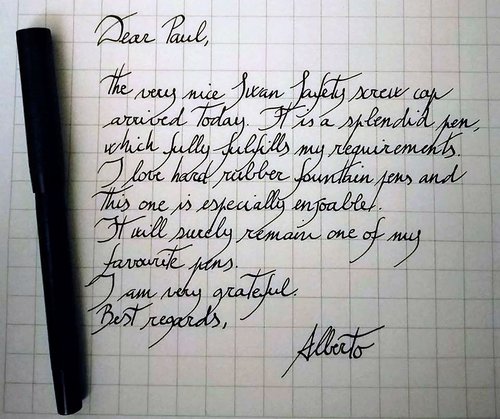 Dear Paul,
the very nice Swan Safety screw cap
arrived today. It is a splendid pen,
which fully fulfills my requirements.
I love hard rubber fountain pens and
this one is especially enjoable.
It will surely remain one of my
favourite pens.
I am very grateful.
Best regards,
Alberto